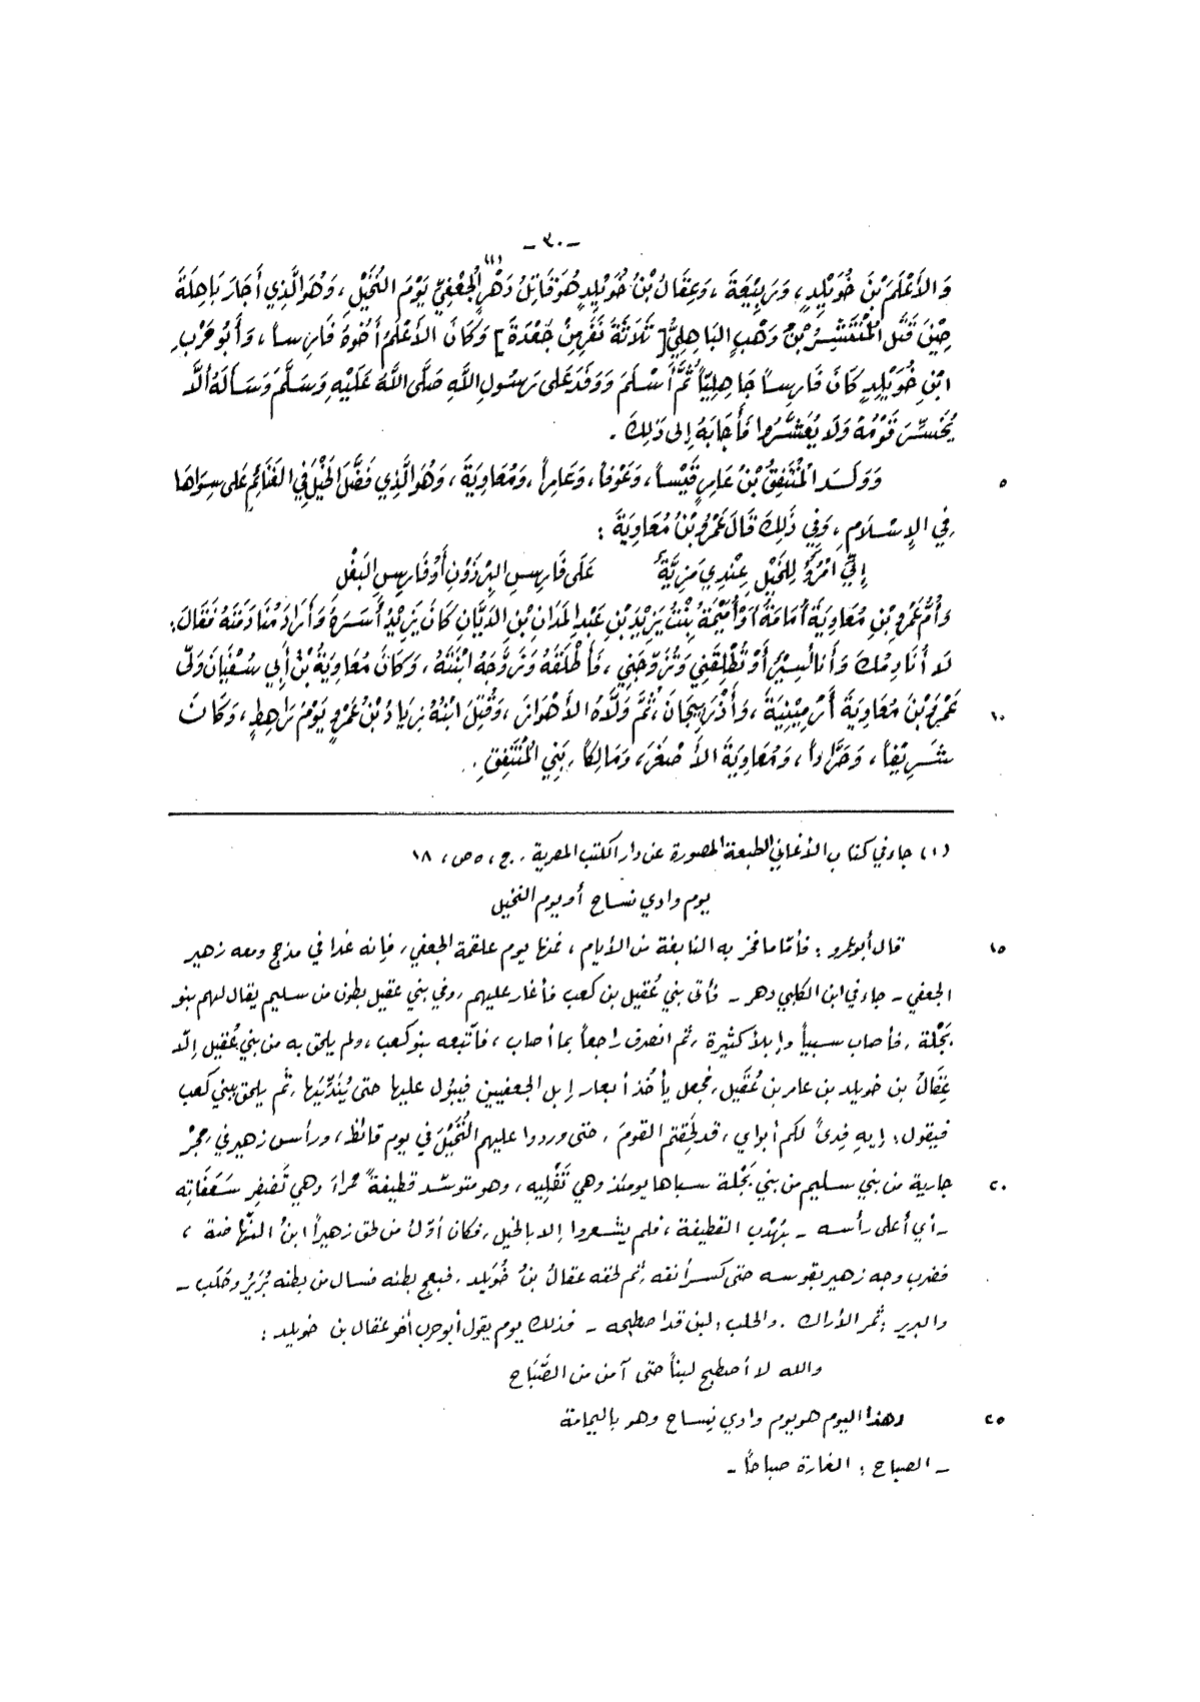 - ٣٠ -
وَالأَعْلَمَ بْنَ خُوَيْلِدٍ، وَرَبِيْعَةَ، وَعِقَالُ بْنُ خُوَيْلِدٍ هُوَ قَاتِلُ دَهْرٍ(١) الْجُعْفِيِّ يَوْمَ النُّخَيْلِ، وَهُوَ الَّذِي أَجَارَ بَاهِلَةَ
حِيْنَ قَتَلَ الْمُنْتَشِرُ بْنُ وَهْبٍ البَاهِلِيُّ [ثَلَاثَةَ نَفَرٍ مِنْ جَعْدَةَ] وَكَانَ الأَعْلَمُ أَخُوهُ فَارِساً، وَأَبُو حَرْبِ
ابْنِ خُوَيْلِدٍ كَانَ فَارِساً جَاهِلِيّاً ثُمَّ أَسْلَمَ وَوَفَدَ عَلَى رَسُولِ اللَّهِ صَلَّى اللَّهُ عَلَيْهِ وَسَلَّمَ وَسَأَلَهُ أَلَّا
يُحْشَرَ قَوْمُهُ وَلَا يُعَشَّرُوا فَأَجَابَهُ إِلَى ذَلِكَ .
٥ وَوَلَدَ الْمُنْتَفِقُ بْنُ عَامِرٍ قَيْساً، وَعَوْفاً، وَعَامِراً، وَمُعَاوِيَةَ، وَهُوَ الَّذِي فَضَّلَ الْخَيْلَ فِي الغَنَائِمِ عَلَى سِوَاهَا
فِي الإِسْلَامِ، وَفِي ذَلِكَ قَالَ عَمْرُو بْنُ مُعَاوِيَةَ :
إِنِّي امْرُؤٌ لِلخَيْلِ عِنْدِي مَزِيَّةٌ عَلَى فَارِسِ البِرْذَوْنِ أَوْ فَارِسِ البَغْلِ
وَأُمُّ عَمْرِو بْنِ مُعَاوِيَةَ أُمَامَةُ أَوْ أُمَيْمَةُ بِنْتُ يَزِيْدَ بْنِ عَبْدِ الْمَدَانِ بْنِ الدَّيَّانِ كَانَ يَزِيْدُ أَسَرَهُ وَأَرَادَ مُنَادَمَتَهُ فَقَالَ:
لَا أُنَادِمُكَ وَأَنَا أَسِيْرٌ أَوْ تُطْلِقَنِي وَتُزَوِّجَنِي، فَأَطْلَقَهُ وَزَوَّجَهُ ابْنَتَهُ، وَكَانَ مُعَاوِيَةُ بْنُ أَبِي سُفْيَانَ وَلَّى
١٠ عَمْرَو بْنَ مُعَاوِيَةَ أَرْمِيْنِيَةَ، وَأَذْرَبِيْجَانَ، ثُمَّ وَلَّاهُ الأَهْوَازَ، وَقُتِلَ ابْنُهُ زِيَادُ بْنُ عَمْرٍو يَوْمَ رَاهِطٍ، وَكَانَ
شَرِيْفاً، وَحَرَّاداً، وَمُعَاوِيَةَ الأَصْغَرَ، وَمَالِكاً، بَنِي الْمُنْتَفِقِ.
(١) جاء في كتاب الأغاني الطبعة المصورة عن دار الكتب المصرية، ج، ٥ ص، ١٨
يوم وادي نساح أو يوم النخيل
١٥ قال أبو عمرو : فأمّا ما فخر به النابغة من الأيام، فمنها يوم علقمة الجعفي، فإنه غدا في مذحج ومعه زهير
الجعفي - جاء في ابن الكلبي دهر - فأتى بني عُقيل بن كعب فأغار عليهم، وفي بني عقيل بطون من سليم يقال لهم بنو
بَجْلة، فأصاب سبياً وإبلاً كثيرة، ثم انصرف راجعاً بما أصاب، فاتّبعه بنو كعب، ولم يلحق به من بني عُقيل إلّا
عِقَالُ بن خويلد بن عامر بن عُقَيل، فجعل يأخُذ أبعار إبل الجعفيين فيبُول عليها حتى يُنَدِّيَها، ثم يلحق ببني كعب
فيقول: إيهِ فِدىً لكم أبواي، قد لَحِقتم القومَ، حتى وردوا عليهم النُّخَيْلَ في يوم قائظ، ورأس زهير في حِجْرِ
٢٠ جارية من بني سليم من بني بَجْلة سباها يومئذ وهي تَفْلِيه، وهو متوسّد قطيفةً حمراءَ وهي تَضفِر سَعَفَاتِه
- أي أعلى رأسه - بهُدْب القطيفة، فلم يشعروا إلا بالخيل، فكان أوّلُ من لحق زهيراً ابنُ النّهاضة،
فضرب وجه زهير بقوسه حتى كسر أنفه، ثم لحقه عقالُ بنُ خُوَيلد، فبعج بطنه فسال من بطنه بُرَيْرٌ وحَلَب -
والبرير: ثمر الأراك. والحلب: لبن قد اصطبحه - فذلك يوم يقول أبو حرب أخو عقال بن خويلد :
والله لا أصطبح لبناً حتى آمن من الصَّبَاح
٢٥ وهذا اليوم هو يوم وادي نِساح وهو باليمامة
- الصباح : الغارة صباحاً -